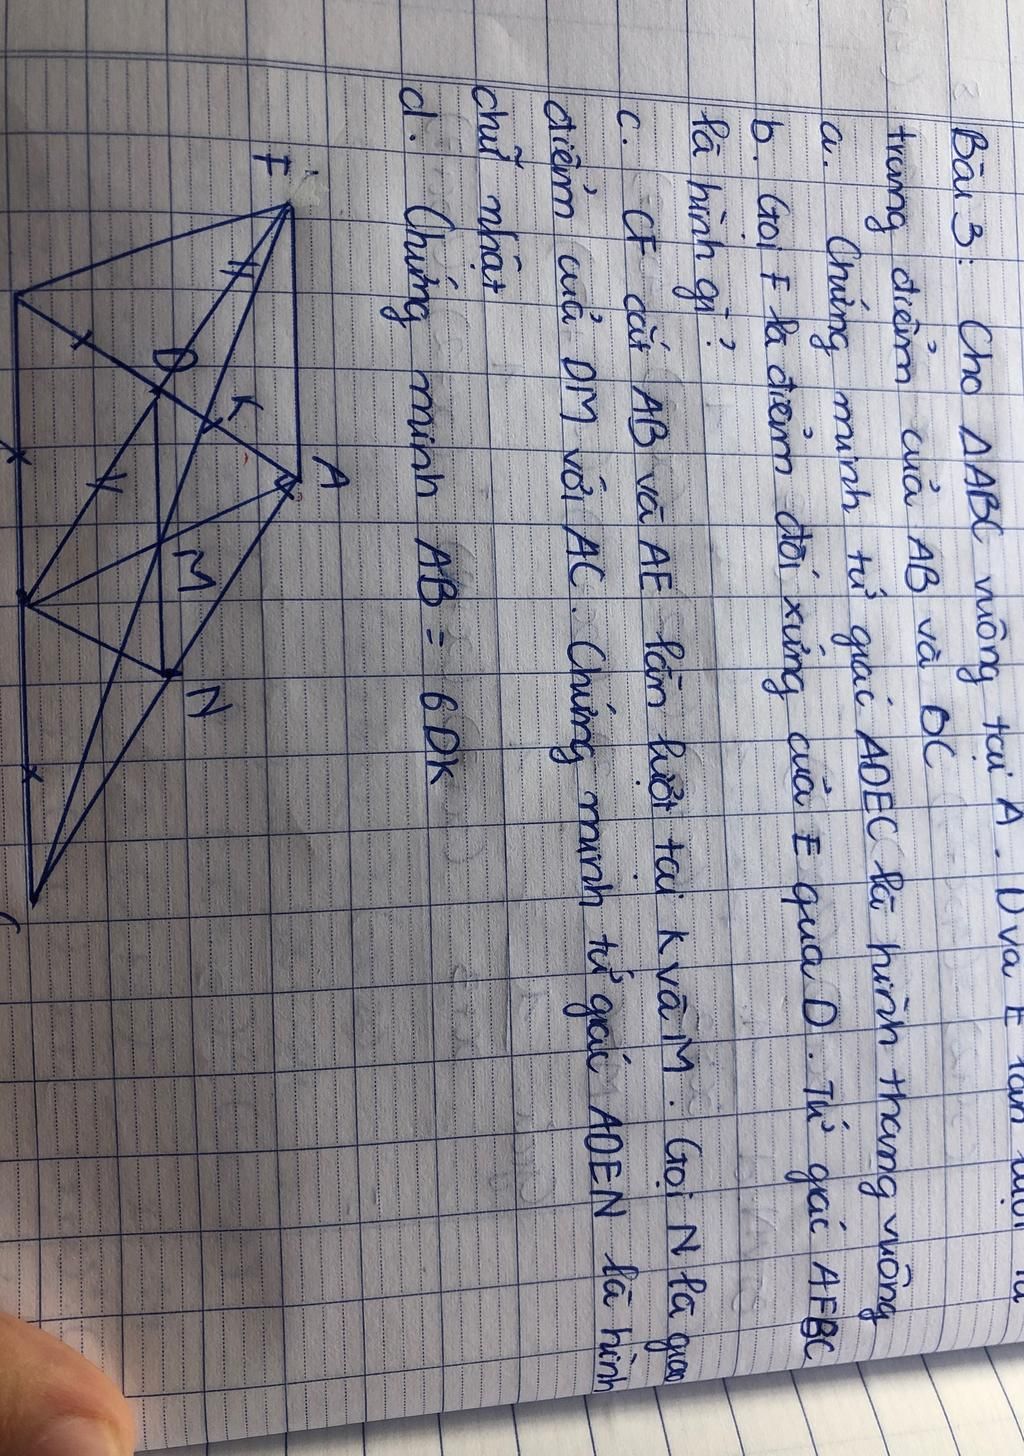 Bài 3: Cho ΔABC vuông tại A. D và E lần lượt là
trung điểm của AB và BC
a. Chứng minh tứ giác ADEC là hình thang vuông
b. Gọi F là điểm đối xứng của E qua D. Tứ giác AFBC
là hình gì?
c. CF cắt AB và AE lần lượt tại K và M. Gọi N là giao
điểm của DM với AC. Chứng minh tứ giác ADEN là hình
chữ nhật
d. Chứng minh AB = 6DK
F
A
K
D
M
N